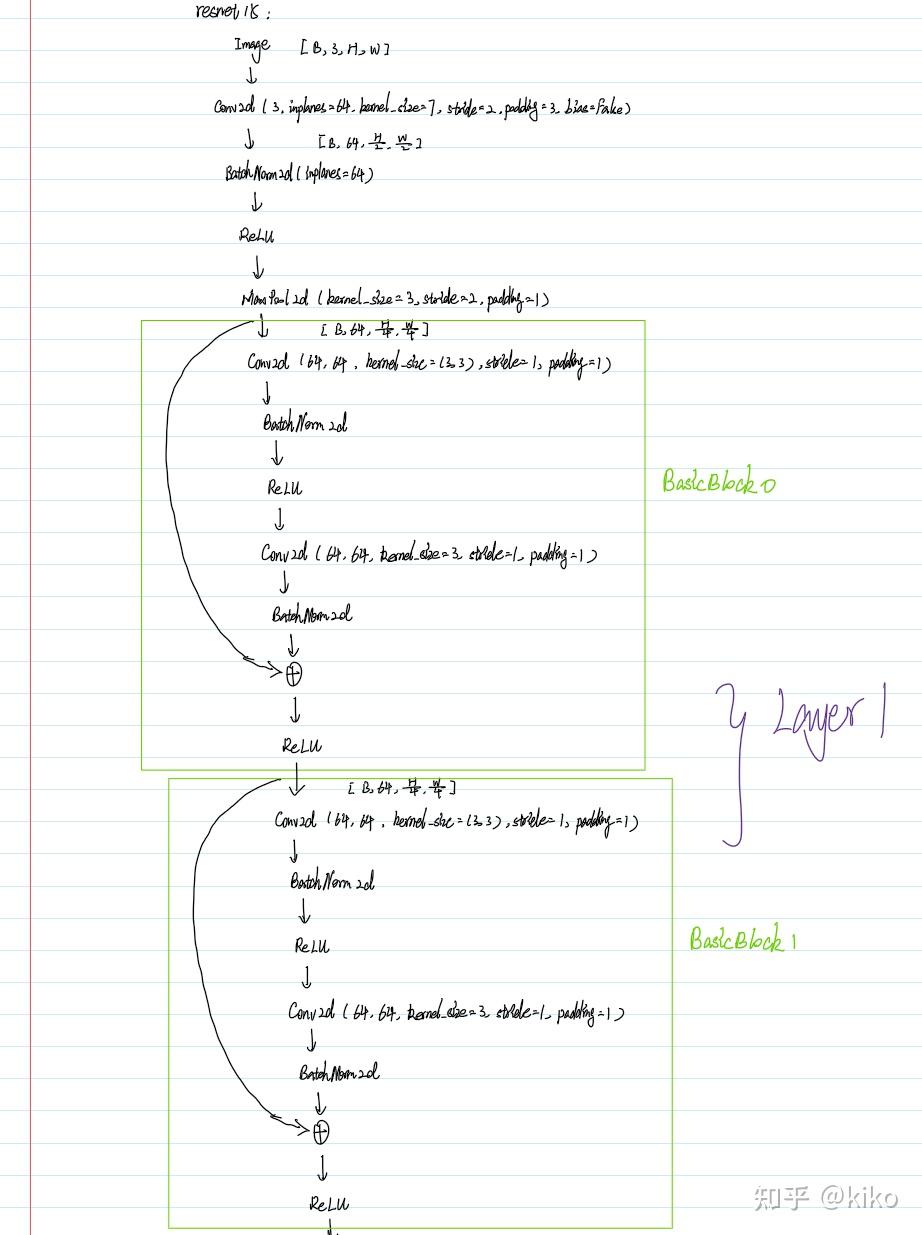 resnet 18:
Image [B, 3, H, W]
Conv2d (3, inplanes=64, kernel_size=7, stride=2, padding=3, bias=False)
[B, 64, H/2, W/2]
BatchNorm2d (inplanes=64)
ReLU
MaxPool2d (kernel_size=3, stride=2, padding=1)
[B, 64, H/4, W/4]
Conv2d (64, 64, kernel_size=(3,3), stride=1, padding=1)
BatchNorm2d
ReLU
BasicBlock0
Conv2d (64, 64, kernel_size=3, stride=1, padding=1)
BatchNorm2d
ReLU
Layer 1
[B, 64, H/4, W/4]
Conv2d (64, 64, kernel_size=(3,3), stride=1, padding=1)
BatchNorm2d
ReLU
BasicBlock1
Conv2d (64, 64, kernel_size=3, stride=1, padding=1)
BatchNorm2d
ReLU
知乎 @kiko